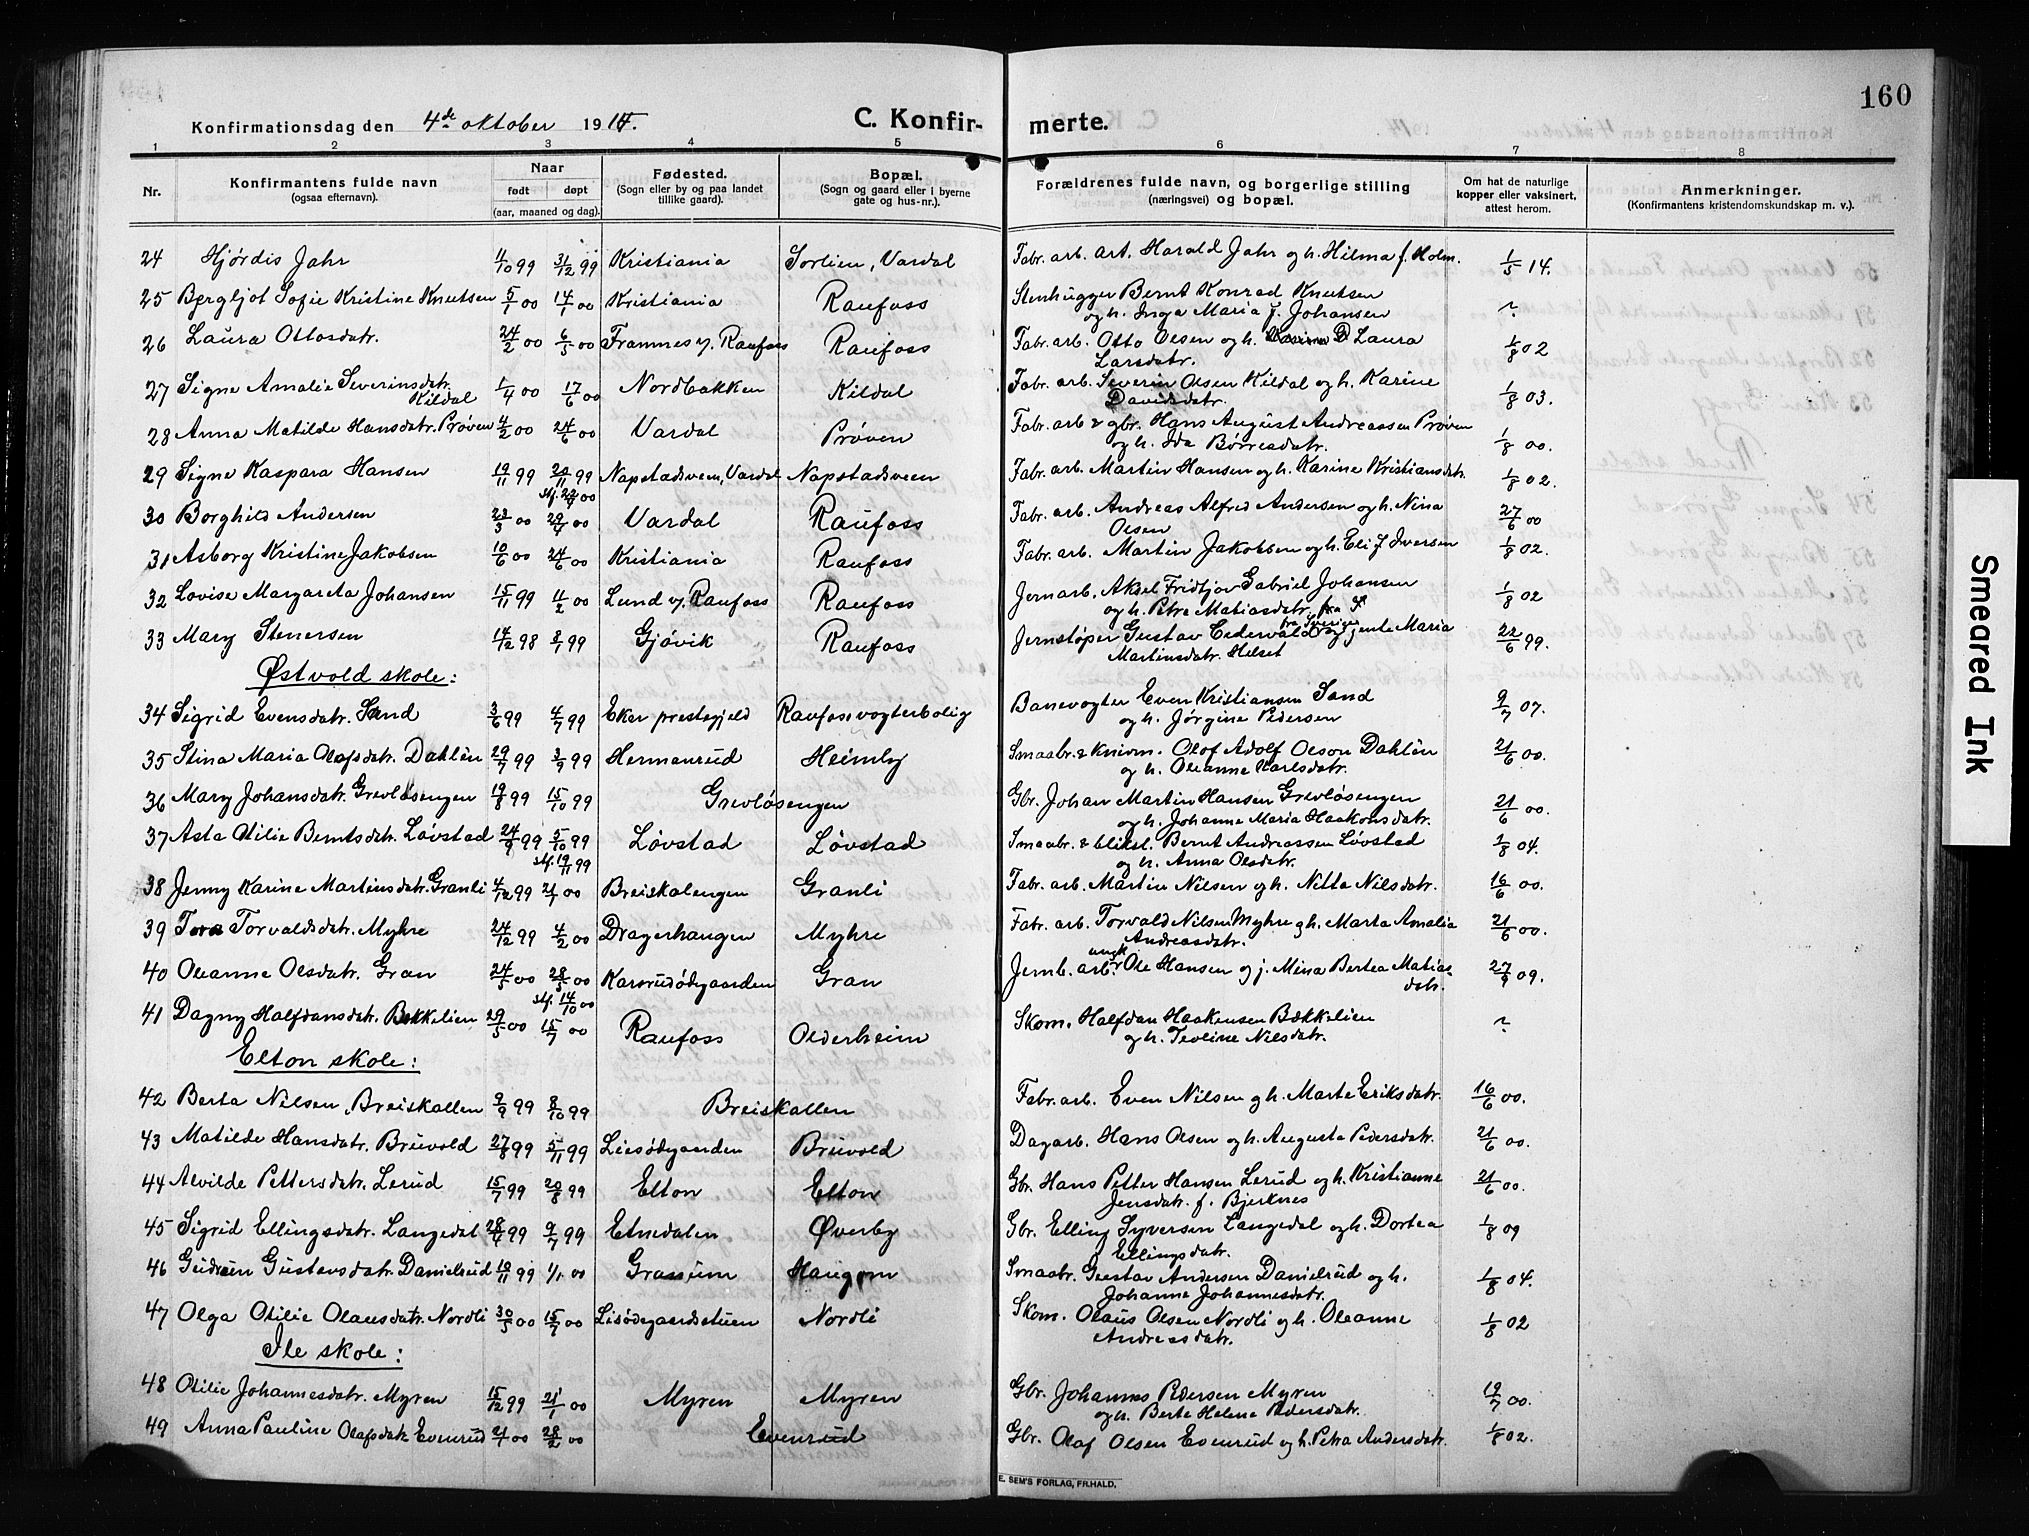 160
Konfirmationsdag den 4de oktober 1914. C. Konfir- merte.
1 2 3 4 5 6 7 8
Nr. Konfirmantens fulde navn (ogsaa efternavn). Naar født døpt (aar, maaned og dag). Fødested. (Sogn eller by og paa landet tillike gaard). Bopæl. (Sogn og gaard eller i byerne gate og hus-nr.). Forældrenes fulde navn, og borgerlige stilling (næringsvei) og bopæl. Om hat de naturlige kopper eller vaksinert, attest herom. Anmerkninger. (Konfirmantens kristendomskundskap m. v.).
24 Hjørdis Jahr 4/10 99 31/12 99 Kristiania Sorlien, Vardal Fabr. arb. art. Harald Jahr og h. Hilma f. Holm. 1/5 14.
25 Bergljot Sofie Kristine Knutsen 5/1 00 14/1 00 Kristiania Raufoss Stenhugger Bernt Konrad Knutsen
og h. Inga Maria f. Johansen ?
26 Laura Ottosdatr. 24/2 00 6/5 00 Framnes v. Raufoss Raufoss Fabr. arb. Otto Olsen og h. Laura
Larsdatr. 1/8 02
27 Signe Amalie Severinsdatr. Kildal 1/4 00 17/6 00 Nordbakken Kildal Fabr. arb. Severin Olsen Kildal og h. Karine
Davidsdatr. 1/8 03.
28 Anna Matilde Hansdatr. Prøven 4/2 00 24/6 00 Vardal Prøven Fabr. arb & gbr. Hans August Andreassen Prøven
og h. Ida Børresdatr. 1/8 00.
29 Signe Kaspara Hansen 19/11 99 20/11 99 Napstadsveen, Vardal Napstadsveen Fabr. arb. Martin Hansen og h. Karine Kristiansdatr. 1/8 02.
30 Borghild Andersen 23/3 00 29/4 00 Vardal Raufoss Fabr. arb. Andreas Alfred Andersen og h. Nina
Olsen 27/6 00
31 Asborg Kristine Jakobsen 10/6 00 24/6 00 Kristiania Raufoss Fabr. arb. Martin Jakobsen og h. Eli f Iversen 1/8 02.
32 Lovise Margareta Johansen 15/11 99 4/2 00 Lund v. Raufoss Raufoss Jernarb. Aksel Fridtjov Gabriel Johansen
og h. Petra Matiasdatr. 1/8 02
33 Mary Stenersen 14/12 98 8/1 99 Gjøvik Raufoss Jernstøper Gustav Cedervald fra Sverige og jente Maria
Martinsdatr. Helset 22/6 99.
Østvold skole:
34 Sigrid Evensdatr. Sand 3/6 99 4/7 99 Eker prestegjeld Raufoss vogterbolig Banevogter Even Kristiansen Sand
og h. Jørgine Pedersen 9/7 07.
35 Stina Maria Olofsdatr. Dahlén 29/7 99 3/9 99 Hermanrud Heimly Smaabr. & knivm. Olof Adolf Olson Dahlén
og h. Oleanne Karlsdatr. 21/6 00.
36 Mary Johansdatr. Grevløsengen 19/8 99 15/10 99 Grevløsengen Gbr. Johan Martin Hansen Grevløsengen
og h. Johanne Maria Haakonsdatr. 21/6 00.
37 Asta Otilie Berntsdatr. Løvstad 24/9 99 5/10 99 Løvstad Løvstad Smaabr. & bliksl. Bernt Andreassen Løvstad
og h. Anna Olsdatr. 2/8 04.
38 Jenny Karine Martinsdatr. Granli 4/12 99 2/1 00 Breiskalengen Granli Fabr. arb. Martin Nilsen og h. Netta Nilsdatr. 16/6 00.
39 Tora Torvaldsdatr. Myhre 24/12 99 4/2 00 Dragerhaugen Myhre Fabr. arb. Torvald Nilsen Myhre og h. Marta Amalia
Andreasdatr. 21/6 00.
40 Oleanne Olsdatr. Gran 24/5 00 28/5 00 Karsrudødegaarden Gran Jernb. arb. ungk. Ole Hansen og j. Mina Bertea Matias-
datr. 27/9 09.
41 Dagny Halfdansdatr. Bekkelien 29/5 00 15/7 00 Raufoss Olderheim Skom. Halfdan Haakensen Bækkelien
og h. Teoline Nilsdatr. ?
Elton skole:
42 Berta Nilsen, Breiskallen 2/9 99 8/10 99 Breiskallen Fabr. arb. Even Nilsen og h. Marte Eriksdatr. 16/6 00.
43 Matilde Hansdatr. Bruvold 27/8 99 5/11 99 Liesødegaarden Bruvold Dagarb. Hans Olsen og h. Augusta Pedersdatr. 21/6 00.
44 Alvilde Pettersdatr. Lerud 15/7 99 20/8 99 Elton Elton Gbr. Hans Petter Hansen Lerud og h. Kristianne
Jensdatr. f. Bjerknes 21/6 00.
45 Sigrid Ellingsdatr. Langedal 28/4 99 9/7 99 Etnedalen Øverby Gbr. Elling Syversen Langedal og h. Dortea
Ellingsdatr. 1/8 09
46 Gudrun Gustavsdatr. Danielsrud 10/11 99 1/1 00 Grassum Haugom Smaabr. Gustav Andersen Danielsrud og h.
Johanne Johannesdatr. 1/8 04.
47 Olga Otilie Olausdatr. Nordli 30/5 00 15/7 00 Lisødegaardsstuen Nordli Skom. Olaus Olsen Nordli og h. Oleanne
Andreasdatr. 1/8 02
Ile skole:
48 Otilie Johannesdatr. Myren 15/12 99 21/1 00 Myren Myren Gbr. Johannes Pedersen Myren
og h. Berte Helene Pedersdatr. 19/7 00.
49 Anna Pauline Olafsdatr. Evenrud 2/1 00 28/2 00 Evenrud Gbr. Olaf Olsen Evenrud og h. Petra Andersdatr. 1/8 02.
E. SEM'S FORLAG, FR.HALD.
Smeared Ink